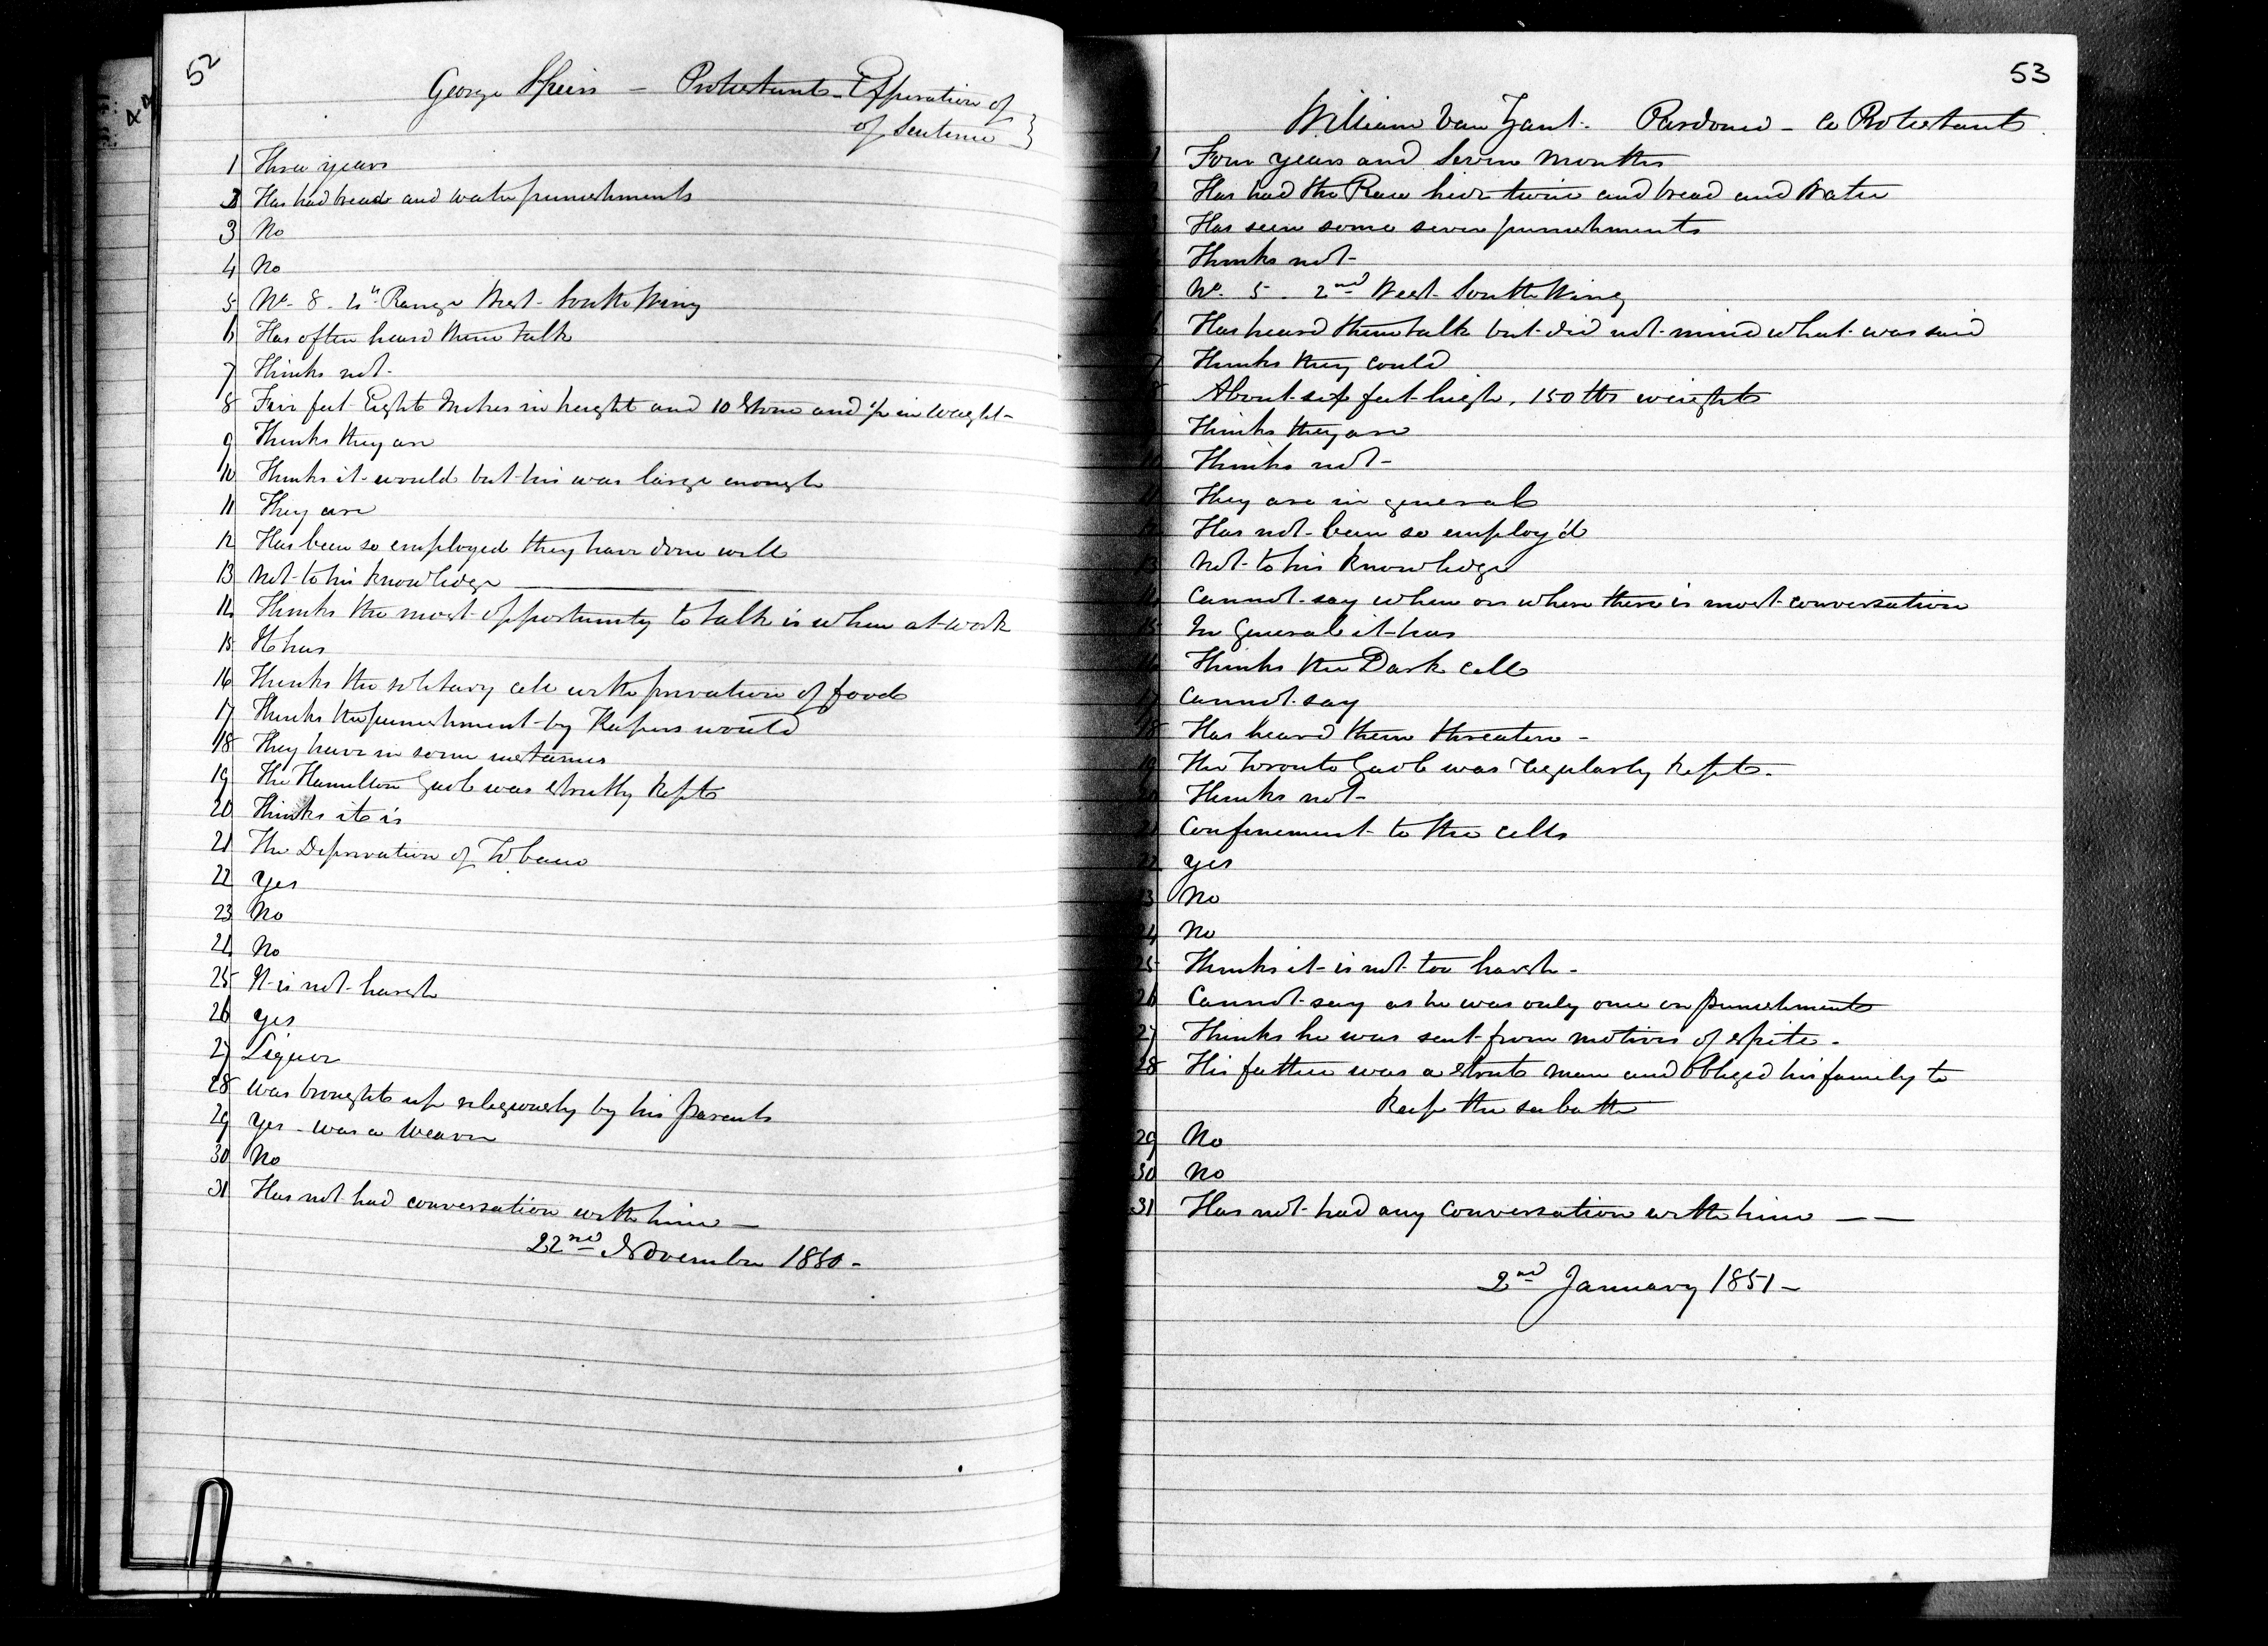 52
George Speirs - Protestant - Expiration of
of Sentence
1 Three years
2 Has had bread and water punishments
3 No
4 No
5 No. 8. 4th Range West South Wing
6 Has often heard them talk
7 Thinks not-
8 Five feet Eight Inches in height and 10 Stone and ½ in Weight-
9 Thinks they are
10 Thinks it would but his was large enough
11 They are
12 Has been so employed they have done well
13 Not to his knowledge
14 Thinks the most opportunity to talk is when at work
15 It has
16 Thinks the solitary cell with privation of food
17 Thinks the punishment by Keepers would
18 They have in some instances
19 The Hamilton Gaol was strictly kept
20 Thinks it is
21 The Deprivation of Tobacco
22 Yes
23 No
24 No
25 It is not harsh
26 Yes
27 Liquor
28 Was brought up religiously by his parents
29 Yes - was a Weaver
30 No
31 Has not had conversation with him —
22nd November 1850-
53
William Van Zant. Pardoned - a Protestant
1 Four years and Seven Months
Has had the Raw hide twice and bread and Water
Has seen some severe punishments
Thinks not-
No. 5. 2nd West South Wing
6 Has heard them talk but did not mind what was said
7 Thinks they could
8 About six feet high, 150 lbs weight
Thinks they are
10 Thinks not-
11 They are in general
12 Has not been so employ'd
13 Not to his knowledge
14 Cannot say when or where there is most conversation
15 In General it has
16 Thinks the Dark cell
17 Cannot say
18 Has heard them threaten -
19 The Toronto Gaol was regularly kept.-
20 Thinks not-
21 Confinement to the cells
22 Yes
23 No
24 No
25 Thinks it is not too harsh -
26 Cannot say as he was only once on punishment
27 Thinks he was sent from motives of spite.
28 His father was a strict man and Obliged his family to
Keep the sabath
29 No
30 No
31 Has not had any conversation with him — —
2nd January 1851-